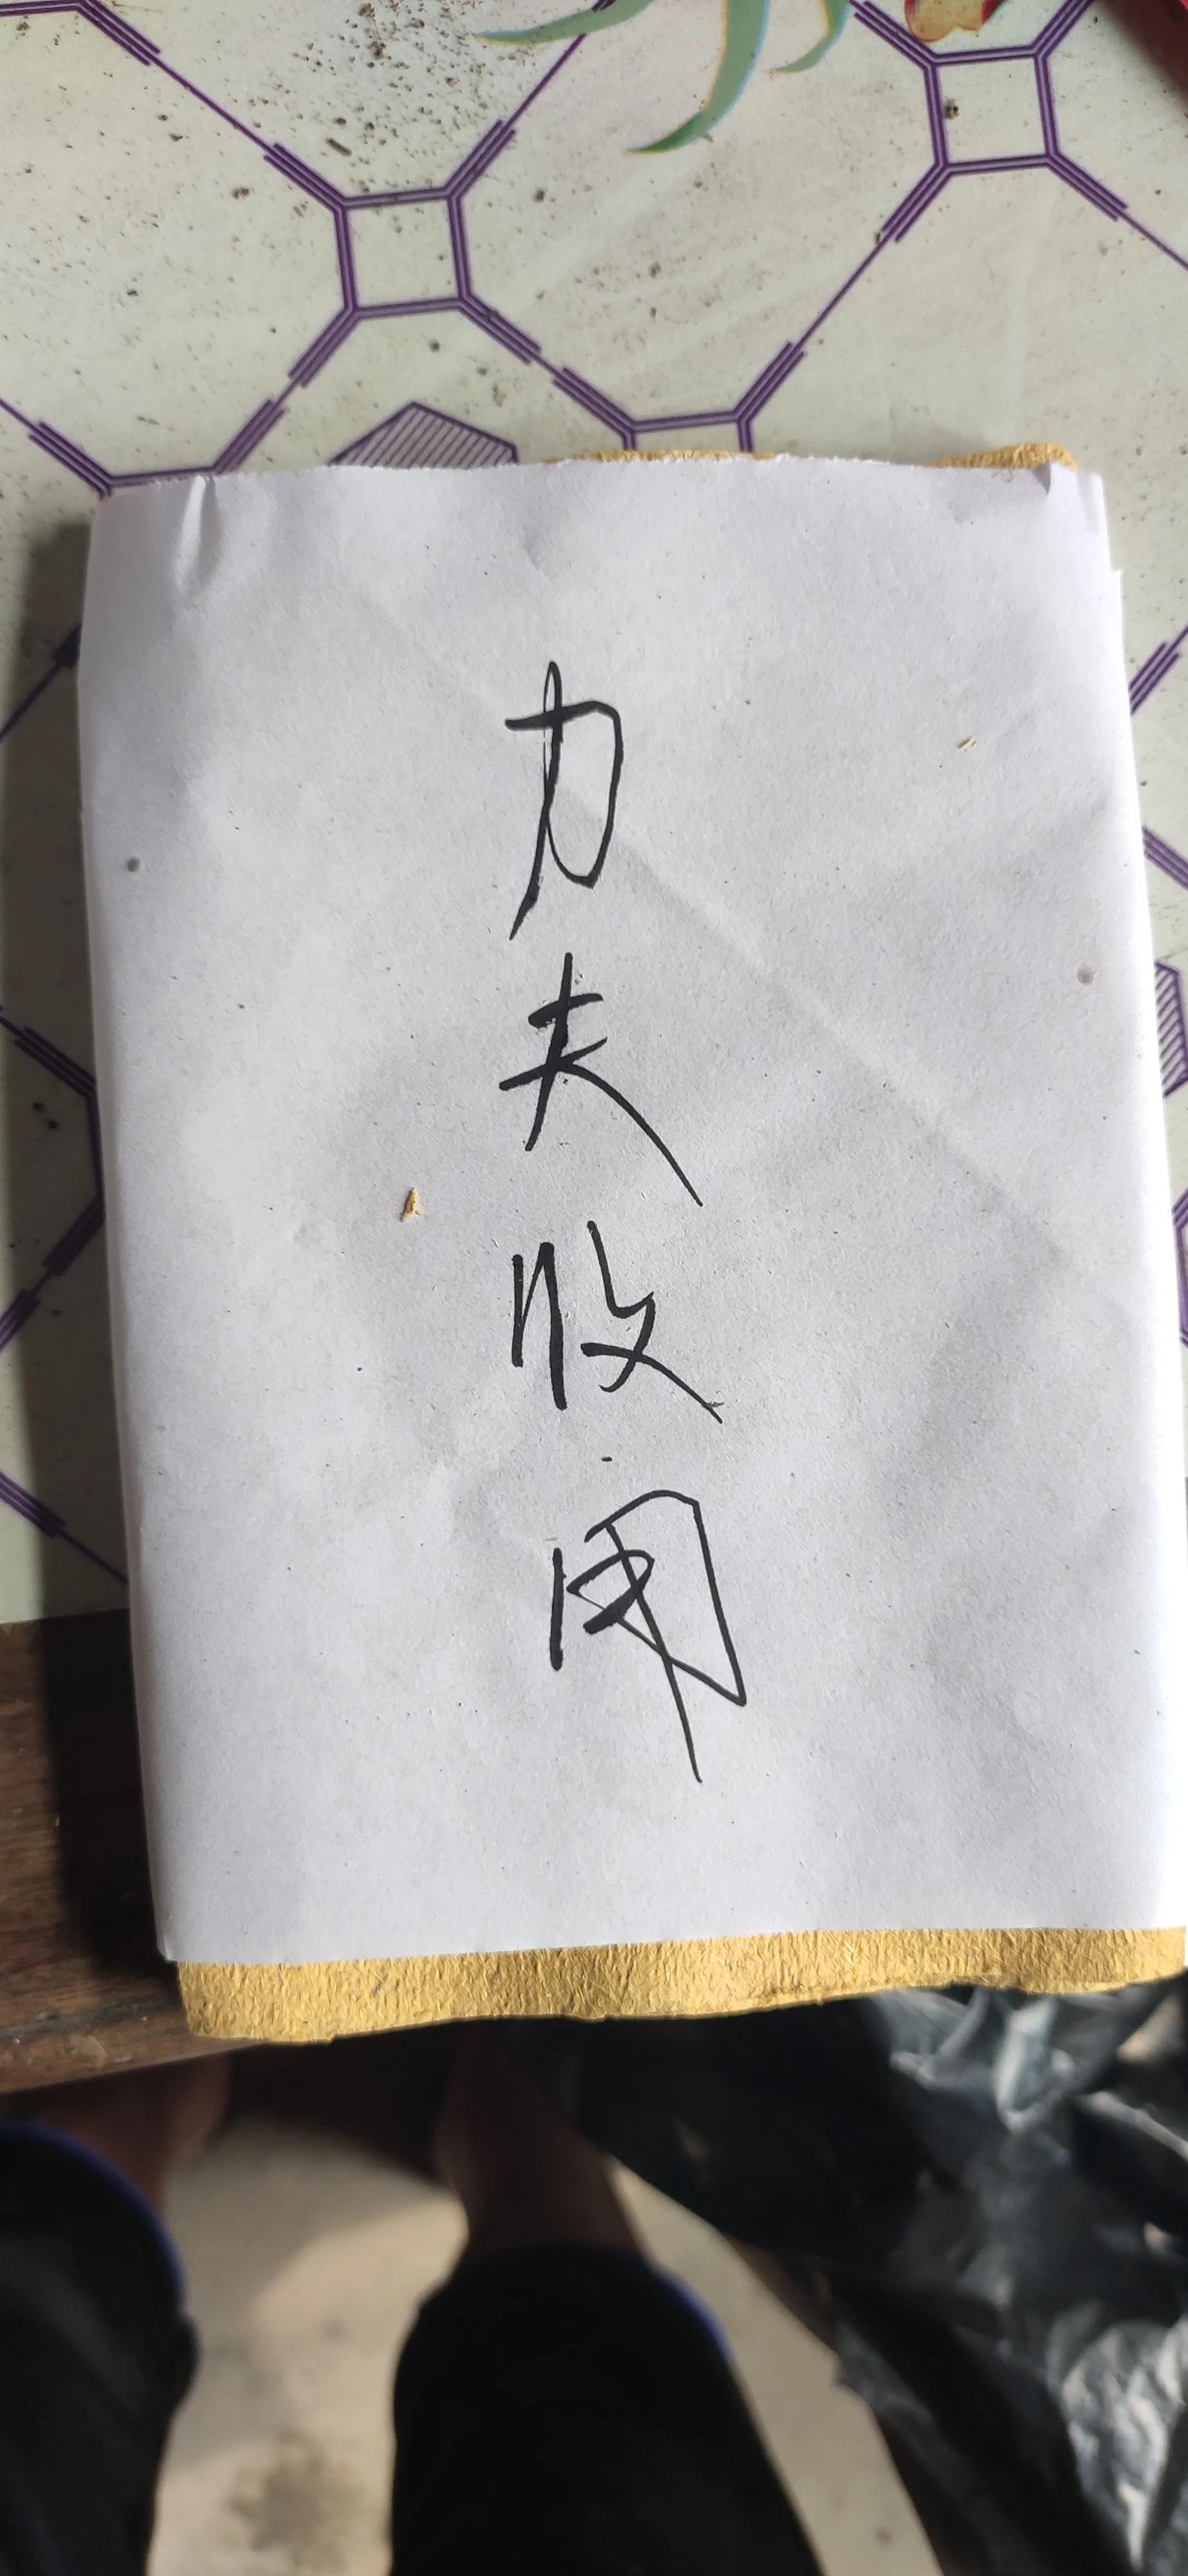 力夫收用